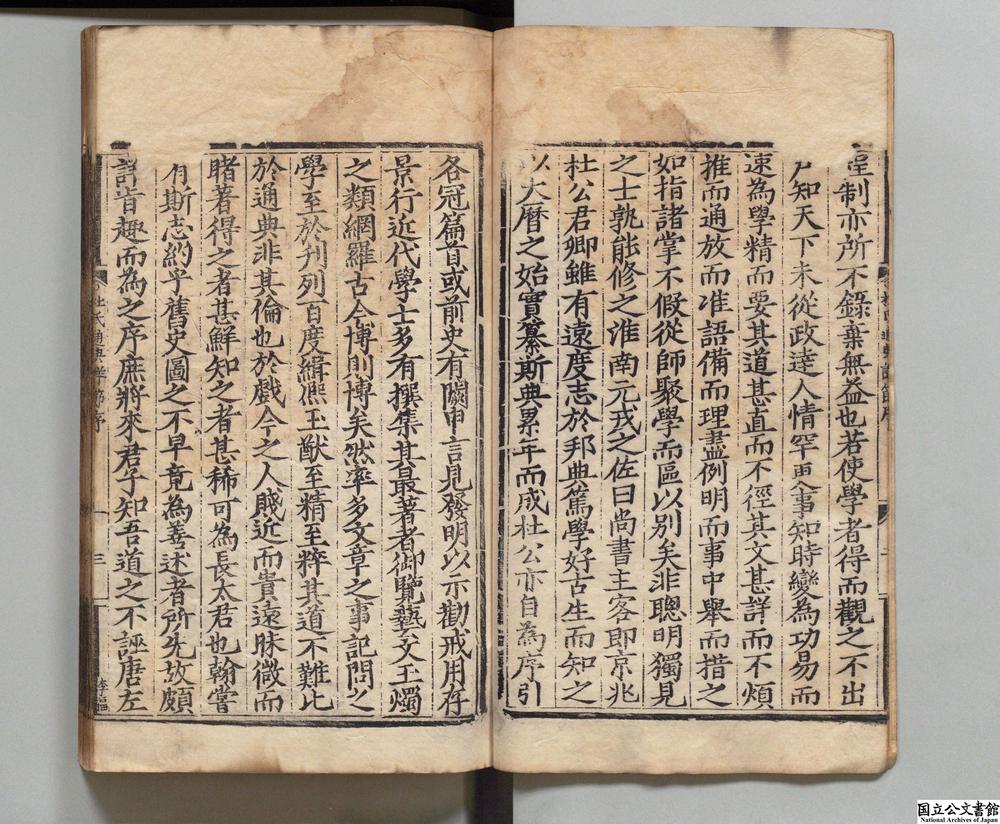 聖制亦所不錄棄無益也若使學者得而觀之不出
戶知天下未從政達人情罕更事知時變為功易而
速為學精而要其道甚直而不徑其文甚詳而不煩
推而通放而准語備而理盡例明而事中舉而措之
如指諸掌不假從師聚學而區以別矣非聰明獨見
之士孰能修之淮南元戎之佐曰尚書主客郎京兆
杜公君卿雅有遠度志於邦典篤學好古生而知之
以大曆之始實纂斯典累年而成杜公亦自為序引
各冠篇首或前史有闕申言見發明以示勸戒用存
景行近代學士多有撰集其最著者御覽藝文玉燭
之類網羅古今博則博矣然率多文章之事記問之
學至於刋列百度緝熈王猷至精至粹其道不雜比
於通典非其倫也於戲今之人賤近而貴遠昧微而
睹著得之者甚鮮知之者甚稀可為長太君也翰嘗
有斯志約乎舊史圖之不早竟為善述者所先故頗
詳旨趣而為之序庶將來君子知吾道之不誣唐左
杜氏通典詳節序
三
国立公文書館
National Archives of Japan